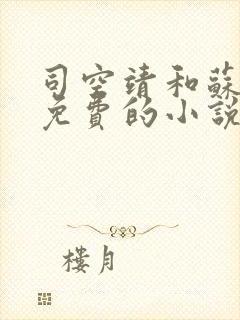 司空靖和蘇
免費的小說
樓月